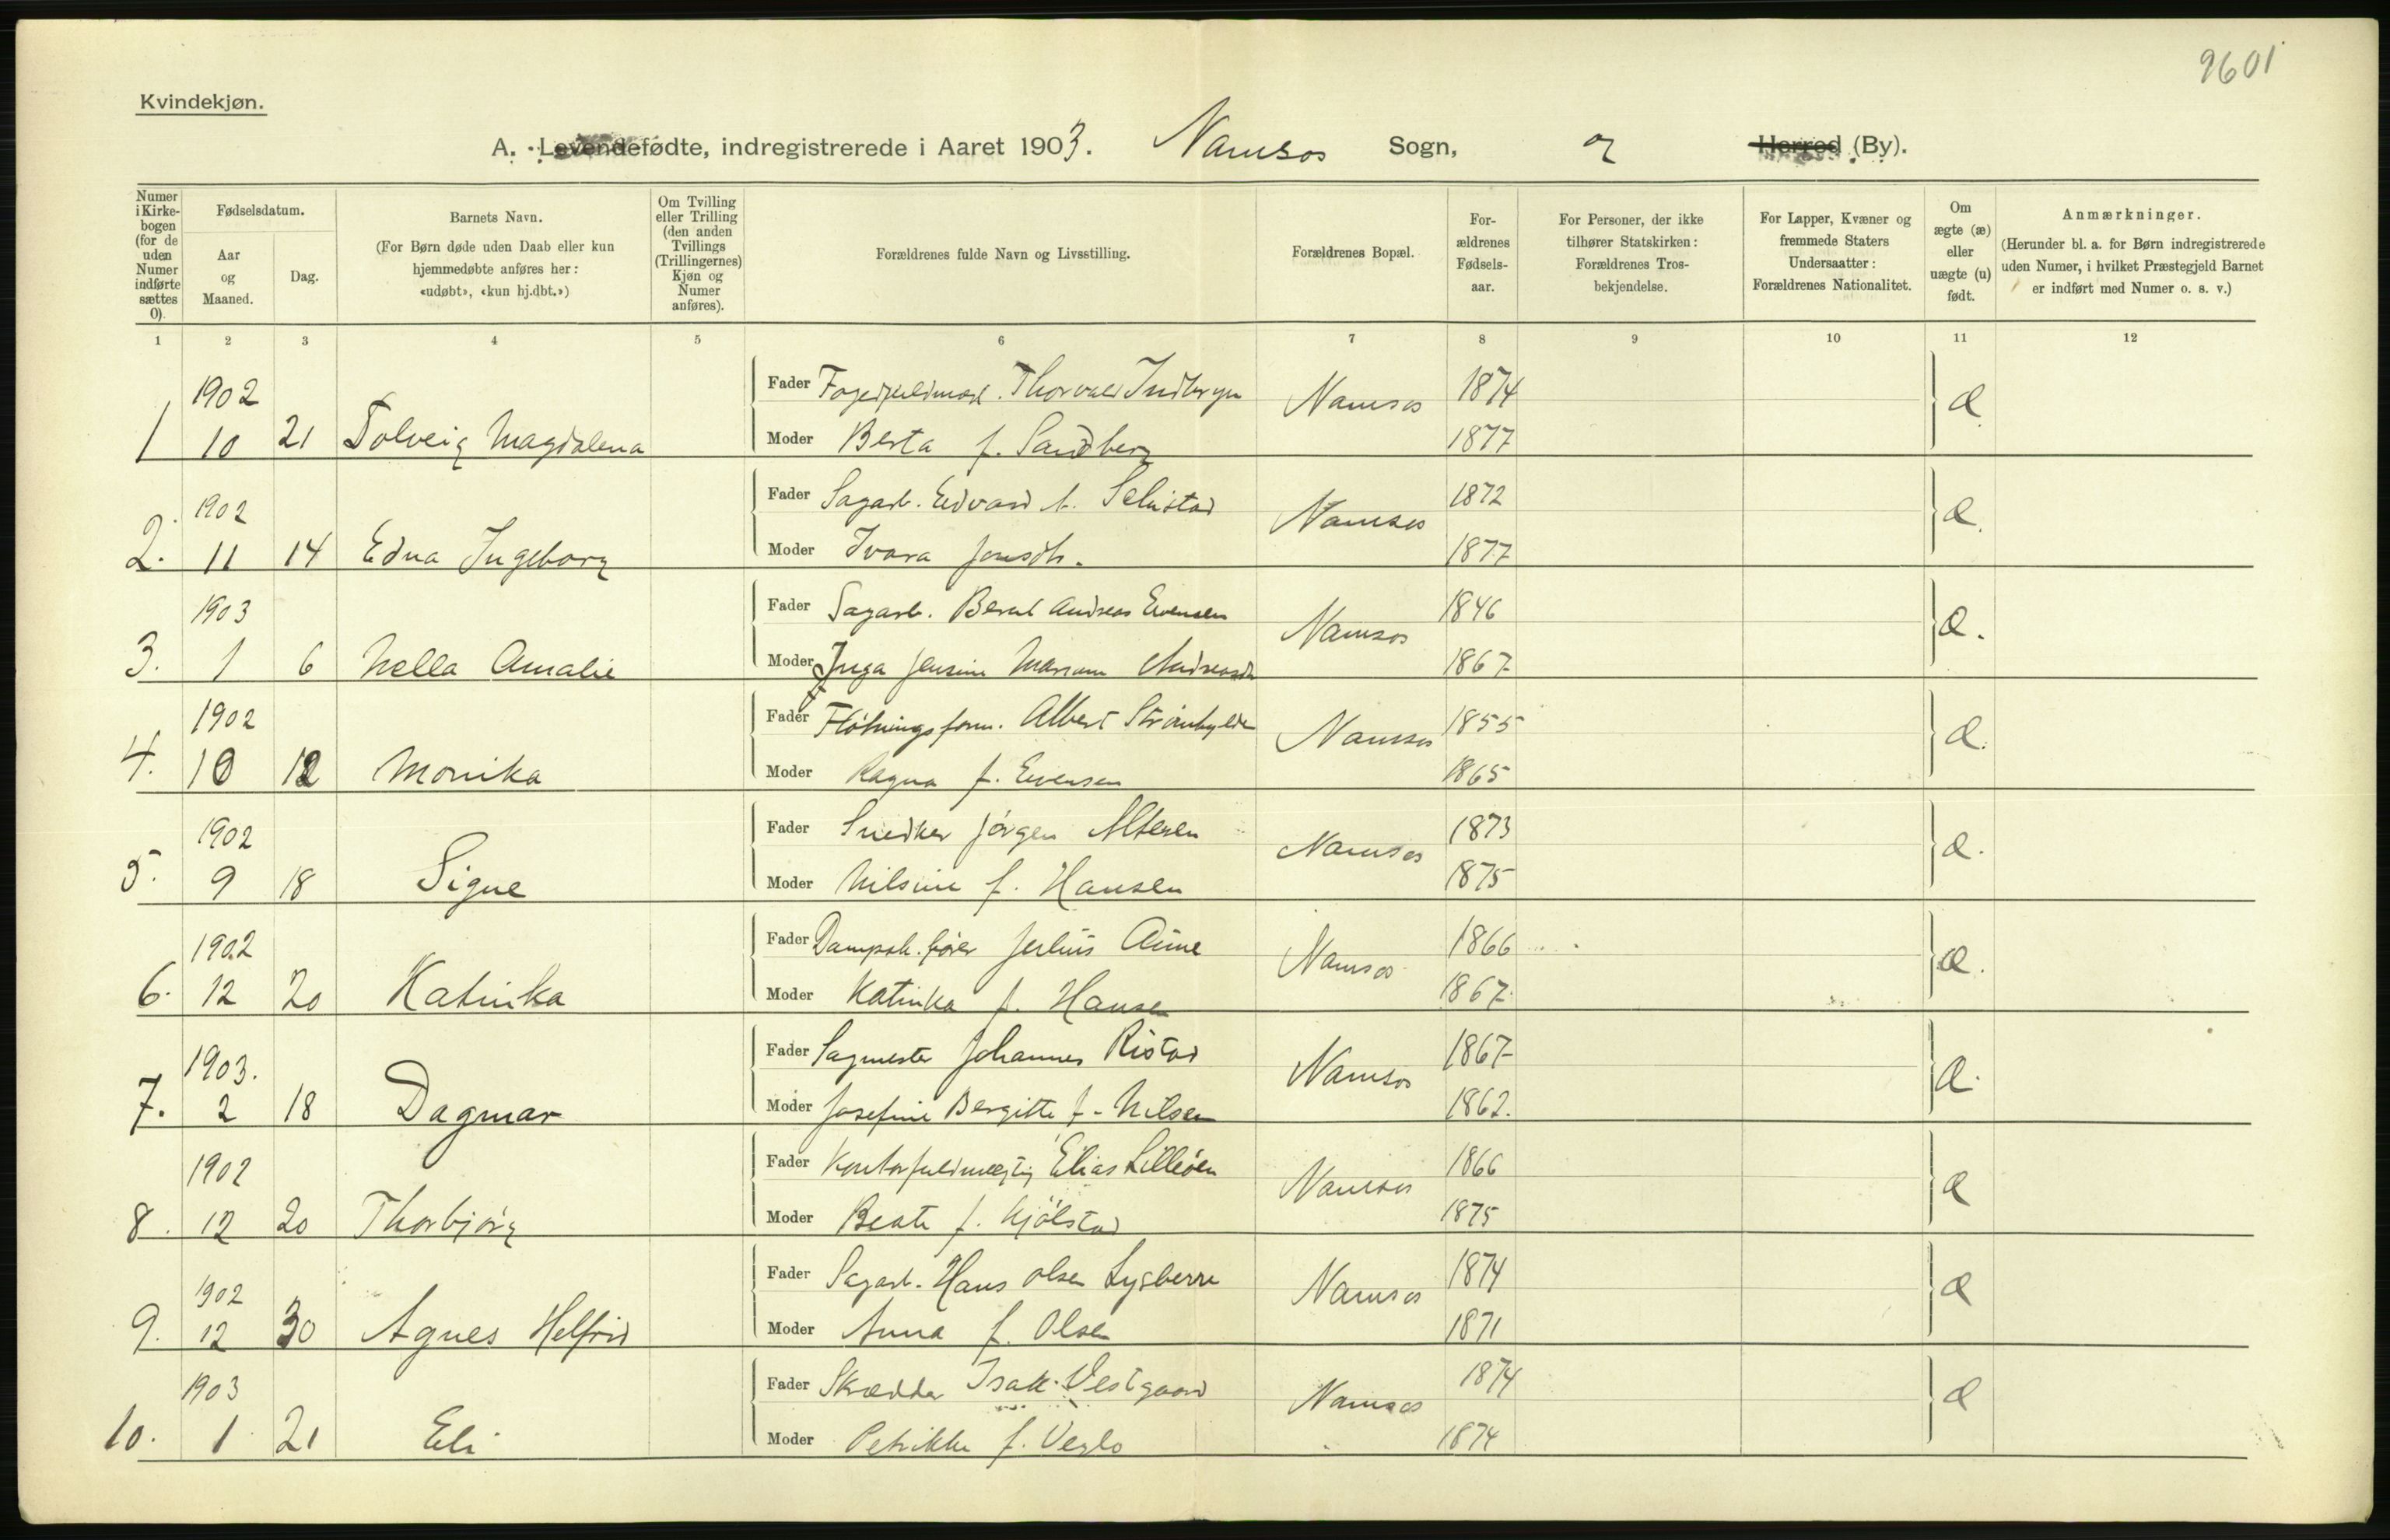 9601
Kvindekjøn.
A. Levendefødte, indregistrerede i Aaret 1903. Namsos Sogn, og Herred (By).
Numer i Kirkebogen (for de uden Numer indførte sættes 0).
Fødselsdatum.
Aar og Maaned.
Dag.
Barnets Navn.
(For Børn døde uden Daab eller kun hjemmedøbte anføres her: «udøbt», «kun hj.dbt.»)
Om Tvilling eller Trilling (den anden Tvillings (Trillingernes) Kjøn og Numer anføres).
Forældrenes fulde Navn og Livsstilling.
Forældrenes Bopæl.
For-ældrenes Fødsels-aar.
For Personer, der ikke tilhører Statskirken: Forældrenes Tros-bekjendelse.
For Lapper, Kvæner og fremmede Staters Undersaatter: Forældrenes Nationalitet.
Om ægte (æ) eller uægte (u) født.
Anmærkninger.
(Herunder bl. a. for Børn indregistrerede uden Numer, i hvilket Præstegjeld Barnet er indført med Numer o. s. v.)
1 2 3 4 5 6 7 8 9 10 11 12
1902 Fader Thorvald Namsos 1874 æ
1 10 21 Solveig Magdalena Moder Berta f. Sandberg 1877
1902 Fader Sagarb. Edvard A. Selnstad Namsos 1872 æ.
2. 11 14 Edna Ingeborg Moder Ivara Jonsdtr. 1877
1903 Fader Sagarb. Bernt Andreas Evensen Namsos 1846 æ.
3. 1 6 Nella Amalie Moder Inga Jensine Mariane Andreasdtr 1867
1902 Fader Fløtningsform. Albert Strømhylden Namsos 1855 æ.
4. 10 12 Monika Moder Ragna f. Evensen 1865
1902 Fader Snedker Jørgen Altesen Namsos 1873 æ.
5. 9 18 Signe Moder Nilsine f. Hansen 1875
1902 Fader Dampsk.fører Julius Aune Namsos 1866 æ.
6. 12 20 Katinka Moder Katinka f. Hansen 1867
1903. Fader Sagmester Johannes Ristad Namsos 1867 æ.
7. 2 18 Dagmar Moder Josefine Bergitte f. Nilsen 1862.
1902 Fader Kontorfuldmægtig Elias Lilleøen Namsos 1866 æ
8. 12 20 Thorbjørg Moder Beate f. Kjølstad 1875
1902 Fader Sagarb. Hans Olsen Lysberre Namsos 1874 æ
9. 12 30 Agnes Helfrid Moder Anna f. Olsen 1871
1903 Fader Skrædder Isak Vestgaard Namsos 1874 æ
10. 1 21 Eli Moder Petrikke f. Veglo 1874